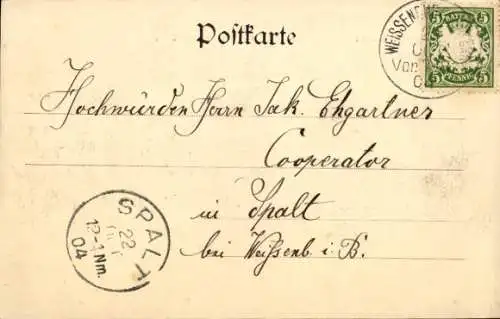 Postkarte
WEISSENB
Von
BAYERN
5 5
PFENNIG
5 5
Hochwürden Herrn Jak. Ehgartner
Cooperator
in Spalt
bei Weissenb. i. B.
SPALT
22
12-1 Nm.
04